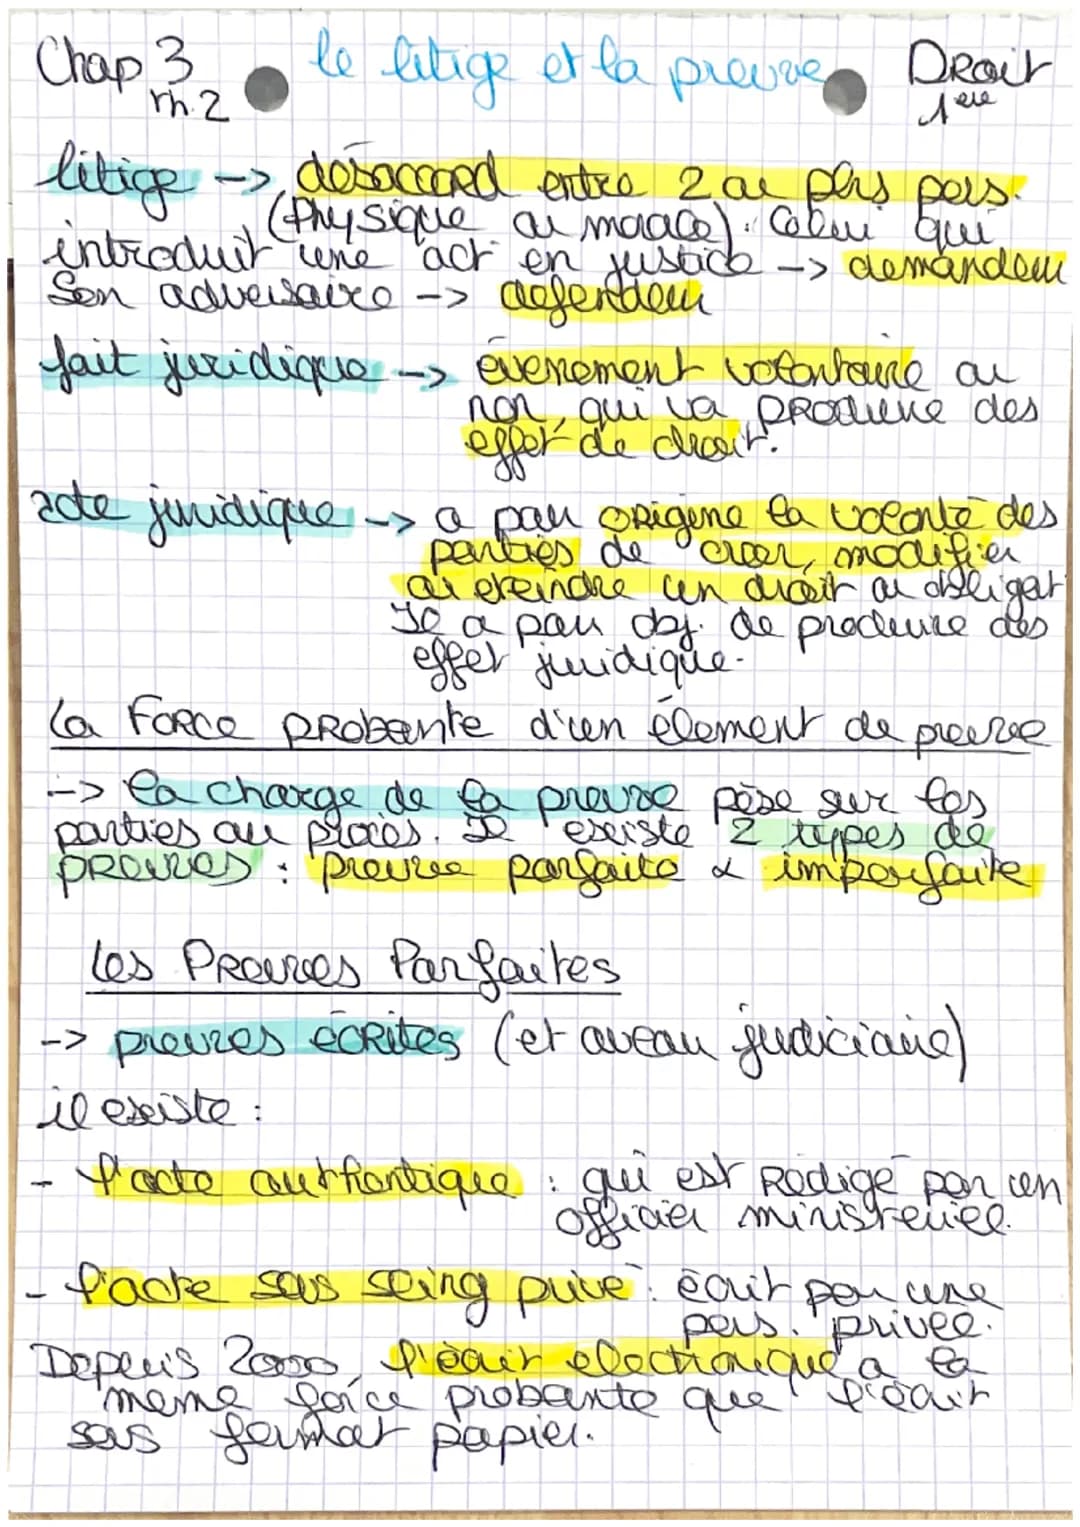 Chap 3 le litige et la preuve Droit
Th.2 1ere
litige -> désaccord entre 2 ou pls pers.
(physique ou morale). Celui qui
introduit une act° en justice -> demandeur
Son adversaire -> défendeur
fait juridique -> évenement volontaire ou
non, qui va produire des
effet de droit.
acte juridique -> a pour origine la volonté des
parties de creer, modifier
ou eteindre un droit ou obligat°
Il a pour obj. de produire des
effet juridique.
La Force probante d'un élement de preuve
-> la charge de la preuve pèse sur les
parties au procès. Il existe 2 types de
preuves : preuve parfaite & imparfaite
Les Preuves Parfaites
-> preuves écrites (et aveau judiciaire)
il existe :
- l'acte authentique : qui est rédigé par un
officier ministeriel.
- l'acte sous seing privé : écrit par une
pers. privée.
Depuis 2000, l'écrit electronique a la
meme force probante que l'écrit
sous format papier.